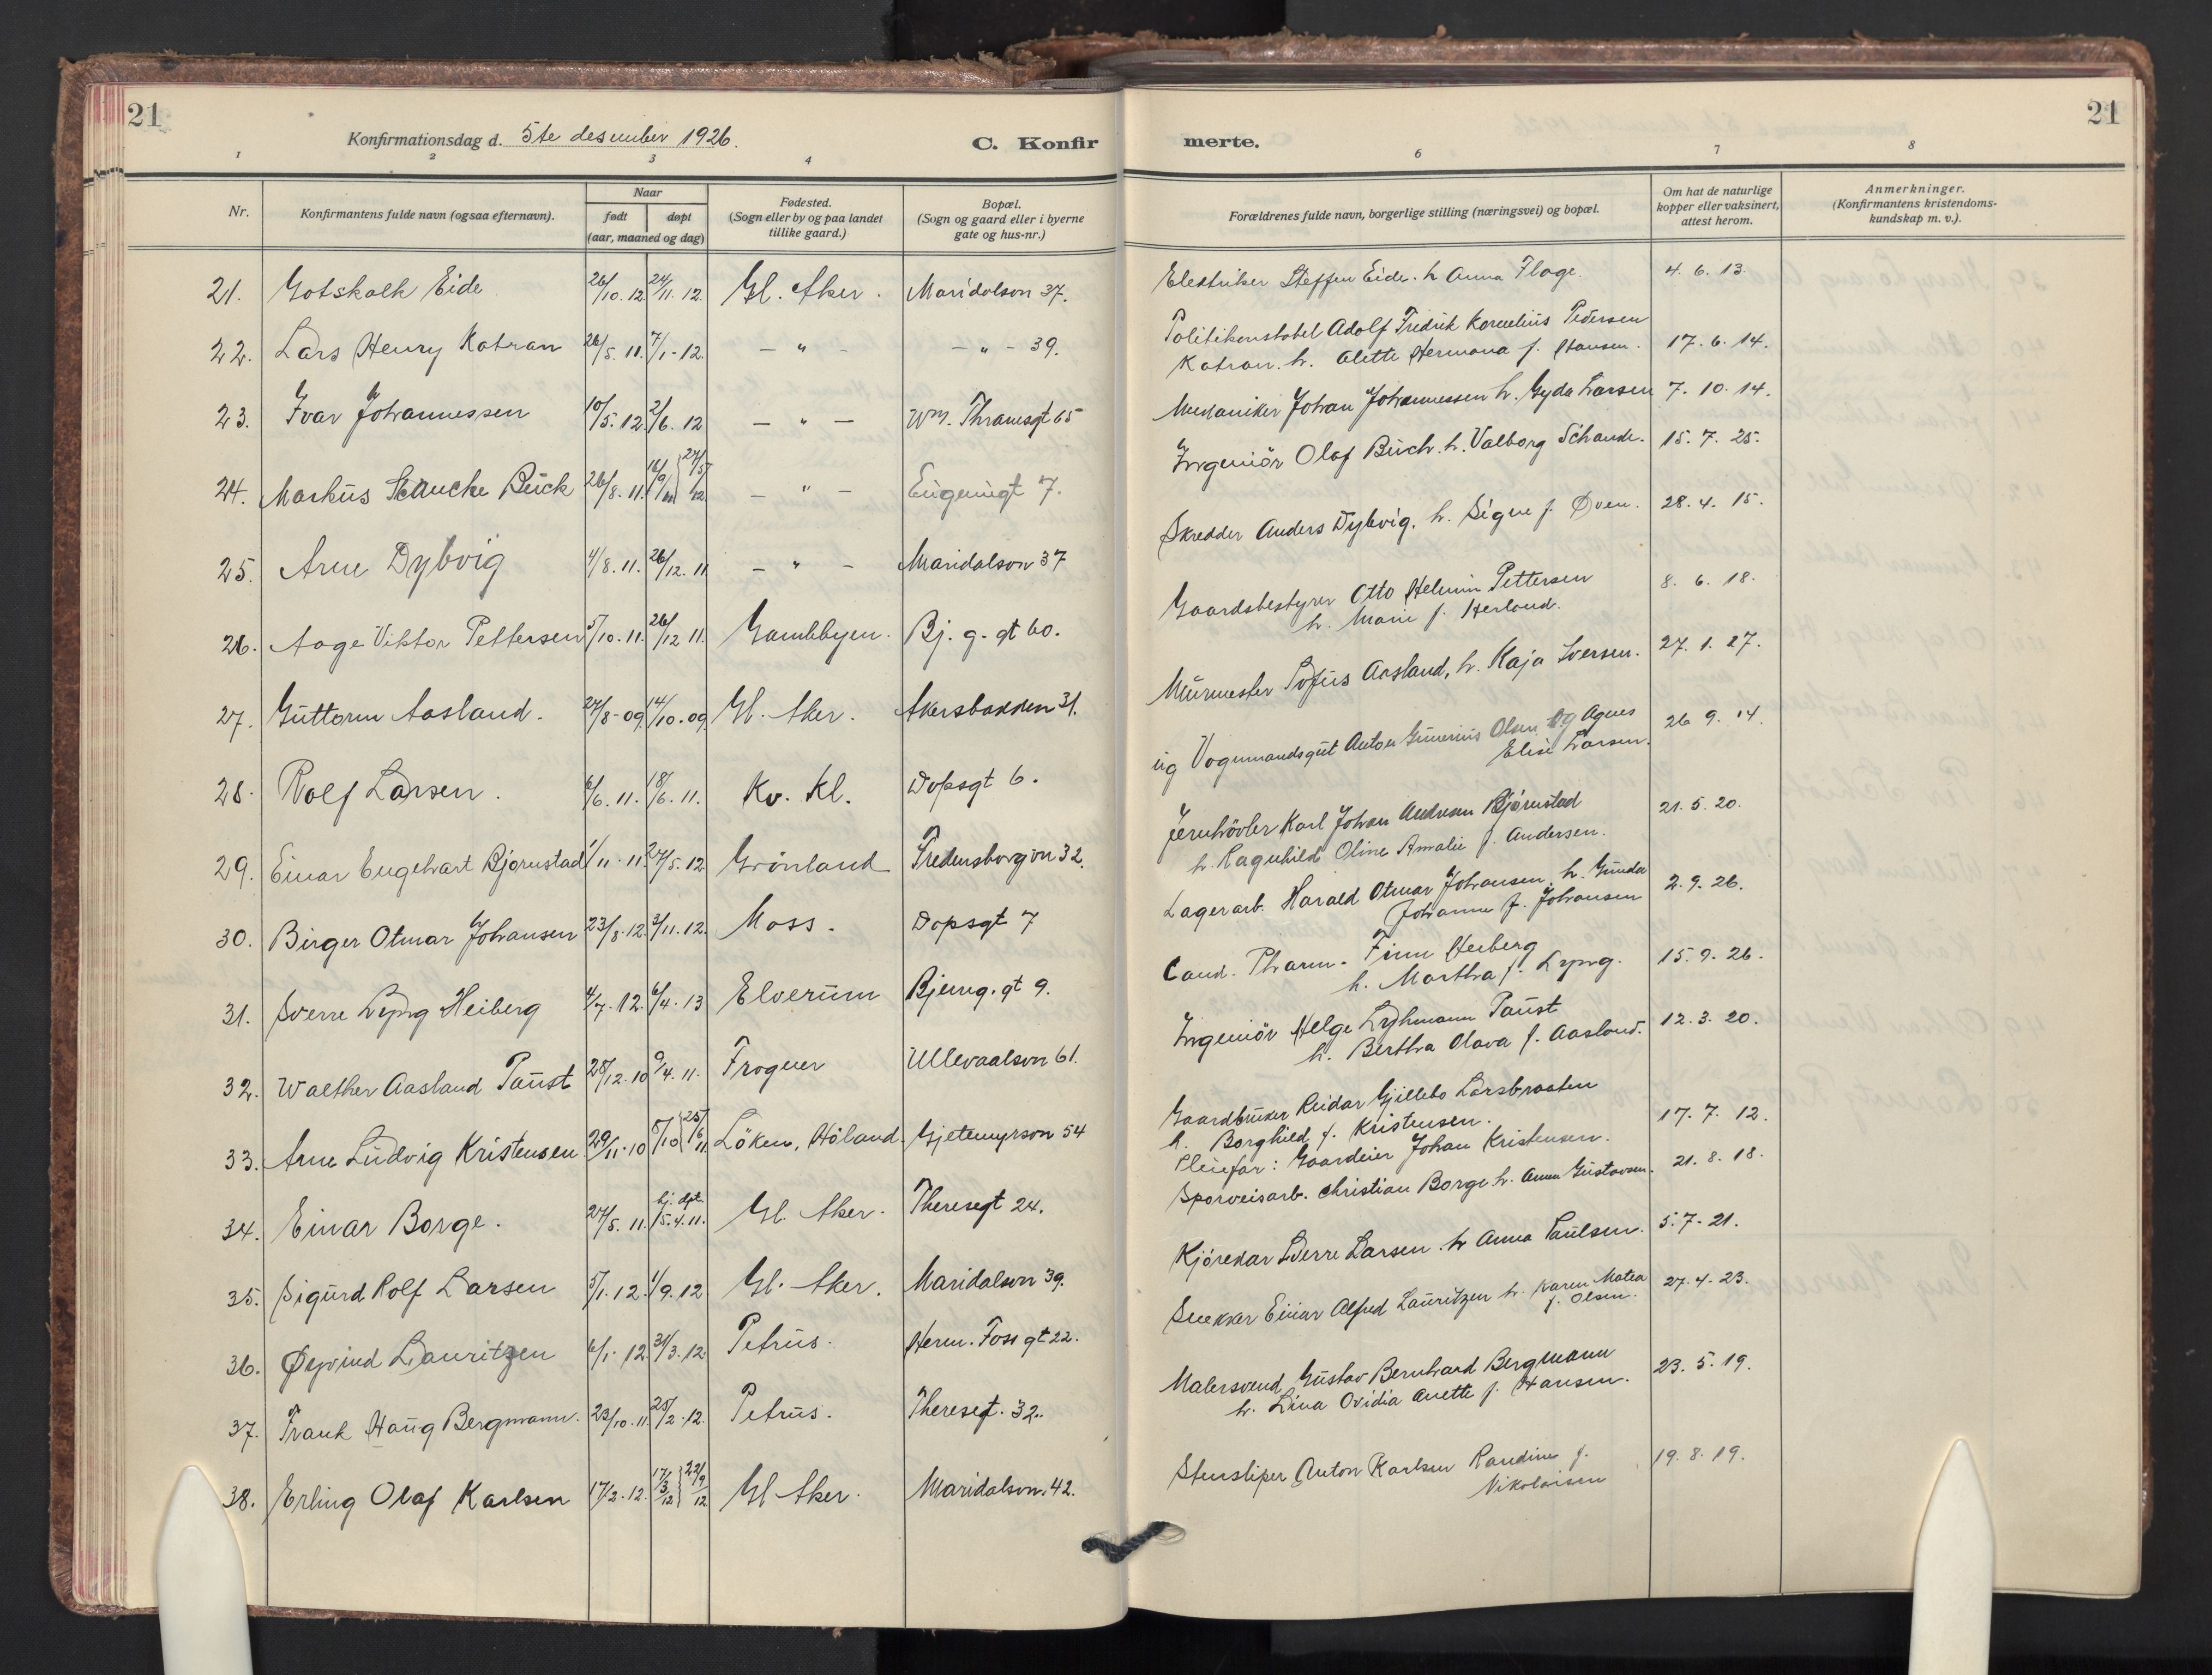 21
Konfirmationsdag d. 5te desember 1926.
C. Konfir
1 2 3 4
Nr.
Konfirmantens fulde navn (ogsaa efternavn).
Naar
født døpt
(aar, maaned og dag)
Fødested.
(Sogn eller by og paa landet
tillike gaard.)
Bopæl.
(Sogn og gaard eller i byerne
gate og hus-nr.)
21. Gotskalk Eide 26/10.12. 24/11.12. Gl. Aker. Maridalsvn 37.
22. Lars Henry Katran 26/5.11. 7/1-12. - " - - " - 39.
23. Ivar Johannessen 10/5.12. 2/6.12 - " - Wm. Thranesgt 65
24. Markus Buch 26/8.11. 16/9 11 } 27/5 12 - " - Eugeniegt 7.
25. Arne Dybvig 4/8.11. 26/12.11. - " - Maridalsvn 37
26. Aage Viktor Pettersen 5/10.11. 26/12 11. Gamlebyen. Bj. g. gt 60.
27. Guttorm Aasland. 27/8-09. 14/10.09. Gl. Aker. Akersbakken 31.
28. Rolf Larsen. 6/6.11. 18/6.11. Kv. Kl. Dopsgt 6.
29. Einar Engelhart Bjørnstad 1/11.11. 27/5.12 Grönland Fredensborgvn 32.
30. Birger Otmar Johansen 23/8.12. 3/11.12. Moss. Dopsgt 7
31. Sverre Lyng Heiberg 4/7.12. 6/4.13 Elverum Bjerreg. gt 9.
32. Walther Aasland Paust 28/12.10 9/4.11. Frogner Ullevaalsvn 61.
33. Arne Ludvig Kristensen 29/11.10 8/10 } 25/6 11 Löken, Höland. Gjetemyrsvn 54
34. Einar Borge. 27/5.11. hj. dpt. 15.4.11. Gl. Aker. Theresegt 24.
35. Sigurd Rolf Larsen 5/1.12. 1/9.12 Gl. Aker. Maridalsvn 39.
36. Øyvind Lauritzen 6/1.12. 31/3.12. Petrus. Herm. Foss gt 22.
37. Frank Haug Bergmann. 23/10.11. 25/2.12. Petrus. Theresegt. 32.
38. Erling Olaf Karlsen 17/2.12. 17/3 12 } 22/9 12 Gl Aker. Maridalsvn. 42.
merte.
21
6 7 8
Forældrenes fulde navn, borgerlige stilling (næringsvei) og bopæl.
Om hat de naturlige
kopper eller vaksinert,
attest herom.
Anmerkninger.
(Konfirmantens kristendoms-
kundskap m. v.).
Elektriker Steffen Eide. h Anna Flage. 4. 6. 13.
Politikonstabel Adolf Fredrik Kornelius Pedersen
Katran. h. Alette Hermana f. Hansen. 17. 6. 14.
Mekaniker Johan Johannessen h. Gyda Larsen 7. 10. 14.
Ingeniör Olaf Buch. h. Valborg Schande. 15. 7. 25.
Skredder Anders Dybvig. h. Signe f. Øven. 28. 4. 15.
Gaardsbestyrer Otto Helmin Pettersen 8. 6. 18.
h. Marie f. Herland.
Murmester Sofus Aasland, h. Kaja Iversen. 27. 1. 27.
ug Vognmandsgut Anton Gunerius Olsen og Agnes 26 9. 14.
Elise Larsen.
Jernhövler Karl Johan Andreas Bjørnstad 21. 5. 20.
h. Ragnhild Oline Amalie f. Andersen.
Lagerarb. Harald Otmar Johansen, h. Gunda 2. 9. 26.
Johanne f. Johansen
Cand. Pharm. Finn Heiberg 15. 9. 26.
h. Martha f. Lyng.
Ingeniör Helge Paust 12. 3. 20.
h. Berthra Olava f. Aasland.
Gaardbruker Reidar Gjillebo Larsbraaten
h. Borghild f. Kristensen. 17. 7. 12.
Pleiefar: Gaardeier Johan Kristensen.
Sporveisarb. Christian Borge h. Anna Gustavsen. 21. 8. 18.
Kjörekar Sverre Larsen. h Anna Paulsen. 5. 7. 21.
Snekker Einar Alfred Lauritzen h. Karen Matea 27. 4. 23.
f. Olsen.
Malersvend Gustav Bernhard Bergmann 23. 5. 19.
h. Lina Ovidia Anette f. Hansen.
Stensliper Anton Karlsen Randine f. 19. 8. 19.
Nikolaisen